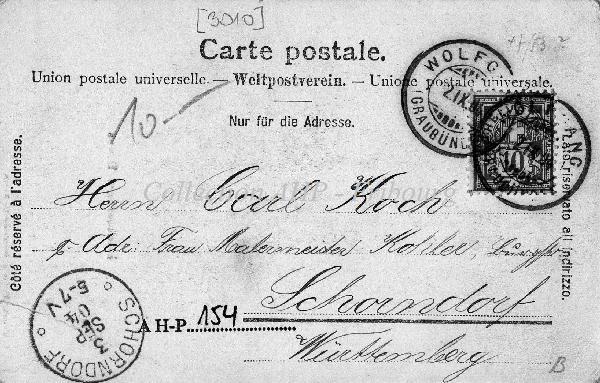 [3010]
Carte postale.
Union postale universelle. — Weltpostverein. — Unione postale universale.
10.-
Nur für die Adresse.
Côté réservé à l'adresse.
Lato riservato all indirizzo.
WOLFG
(GRAUBÜND
10
ANG
Collection AHP
Herrn Carl Koch
p. Adr. Frau Malermeister Kohler,
Schorndorf
Württemberg
SCHORNDORF
3
SEP
04
5-7 V
A H-P 154
B